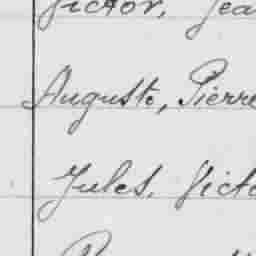 Victor, Jea
Auguste, Pierre
Jules, Victo